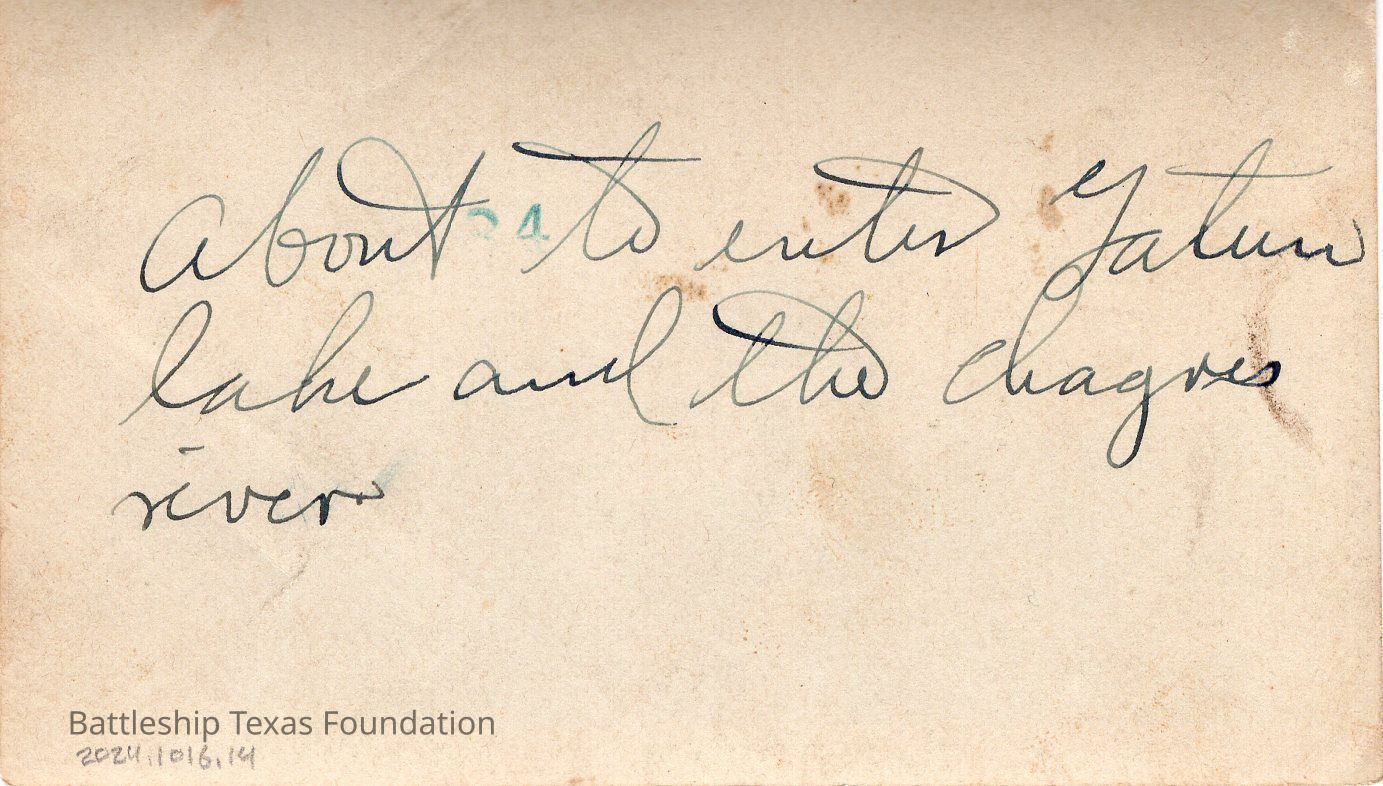 About to enter Gatun
24
lake and the chagres
river
Battleship Texas Foundation
2024.1016.14